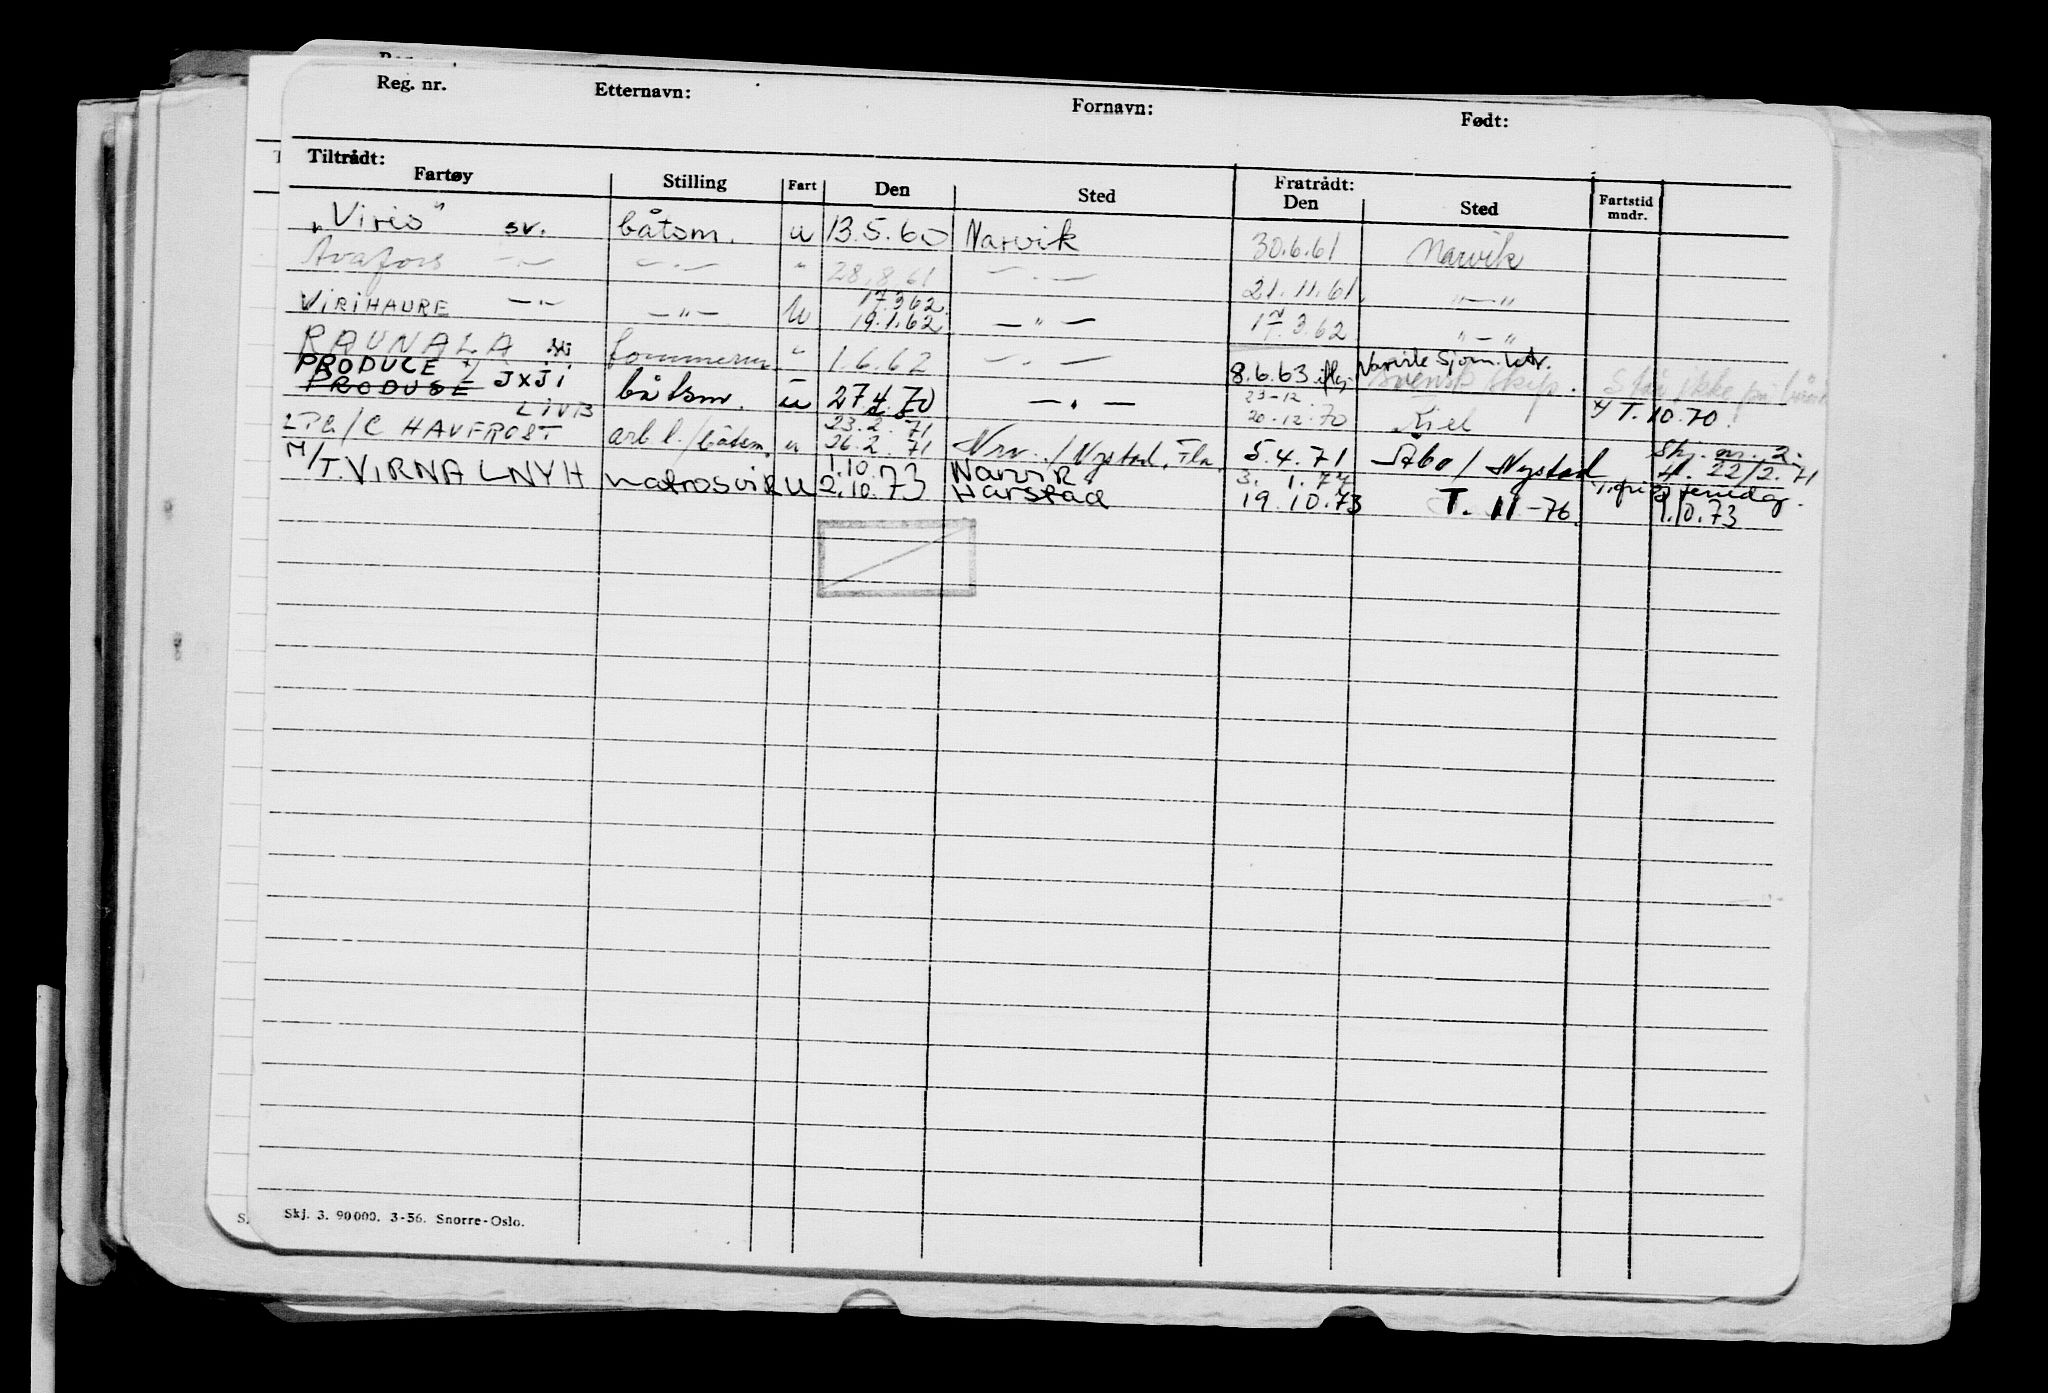 Reg. nr. Etternavn: Fornavn: Født:
Tiltrådt: Fratrådt:
Fartøy Stilling Fart Den Sted Den Sted Fartstid mndr.
"Viris" sv. båtsm. u 13.5.60 Narvik 30.6.61 Narvik
Avafors —"— —"— " 28.8.61 —"— 21.11.61 —"—
17.3.62
VIRIHAURE —"— —"— u 19.1.62 —"— 17.3.62 "—"
RAUNALA " 1.6.62 —"— 8.6.63 Narvik Sjøm.ktr.
PRODUCE svensk skip. Står ikke på
PRODUSE JXJI båtsm. u 27.4.70 —"— 23-12
LIVB 23.2.71 20.12.70 Kiel T.10.70
/C HAVFROST arb l./båtsm. u 26.2.71 Nrv./Nystad, Fla. 5.4.71 Åbo/Nystad Skj. nr. 2. 22/2.71
1.10.73 Narvik 3.1.77
M/T. VIRNA LNYH matrosvik u 2.10.73 Harstad 19.10.73 T. 11-76. 1.10.73
Skj. 3. 90000. 3-56. Snorre-Oslo.